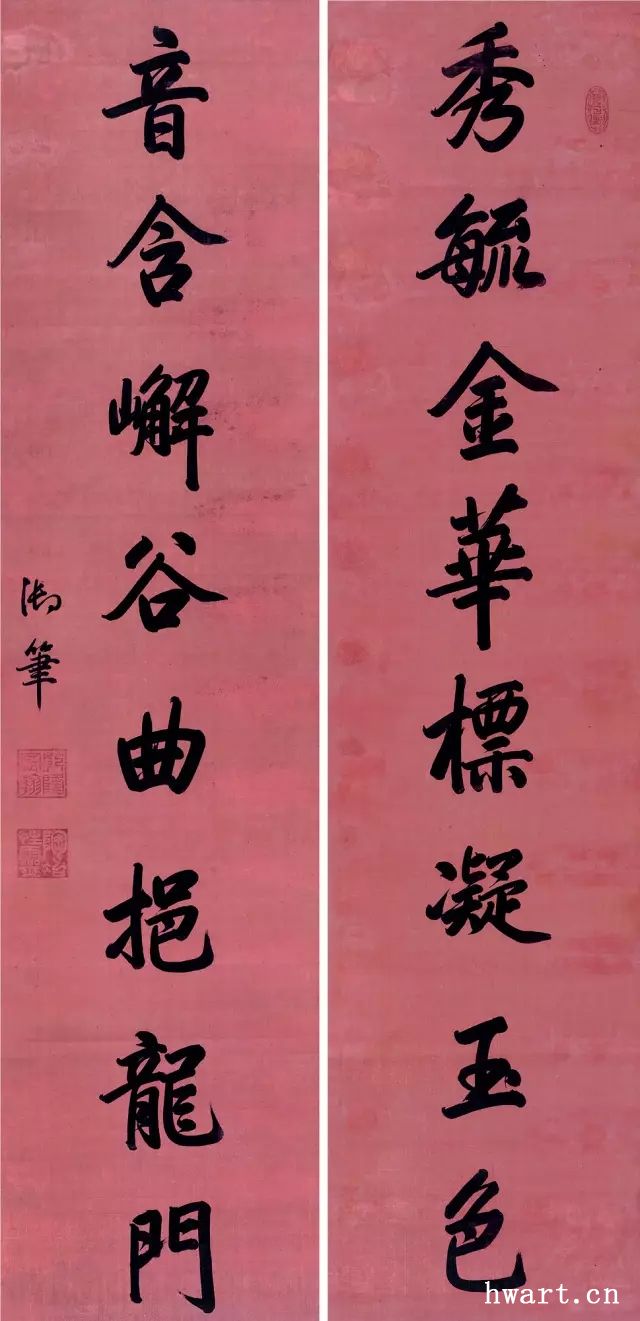 秀毓金華標凝玉色
音含嶰谷曲挹龍門
御筆
hwart.cn